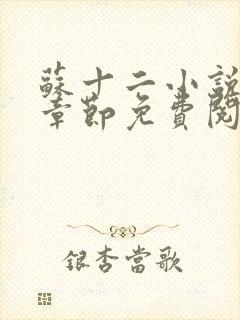 蘇十二小說
章節免費閱
銀杏當歌